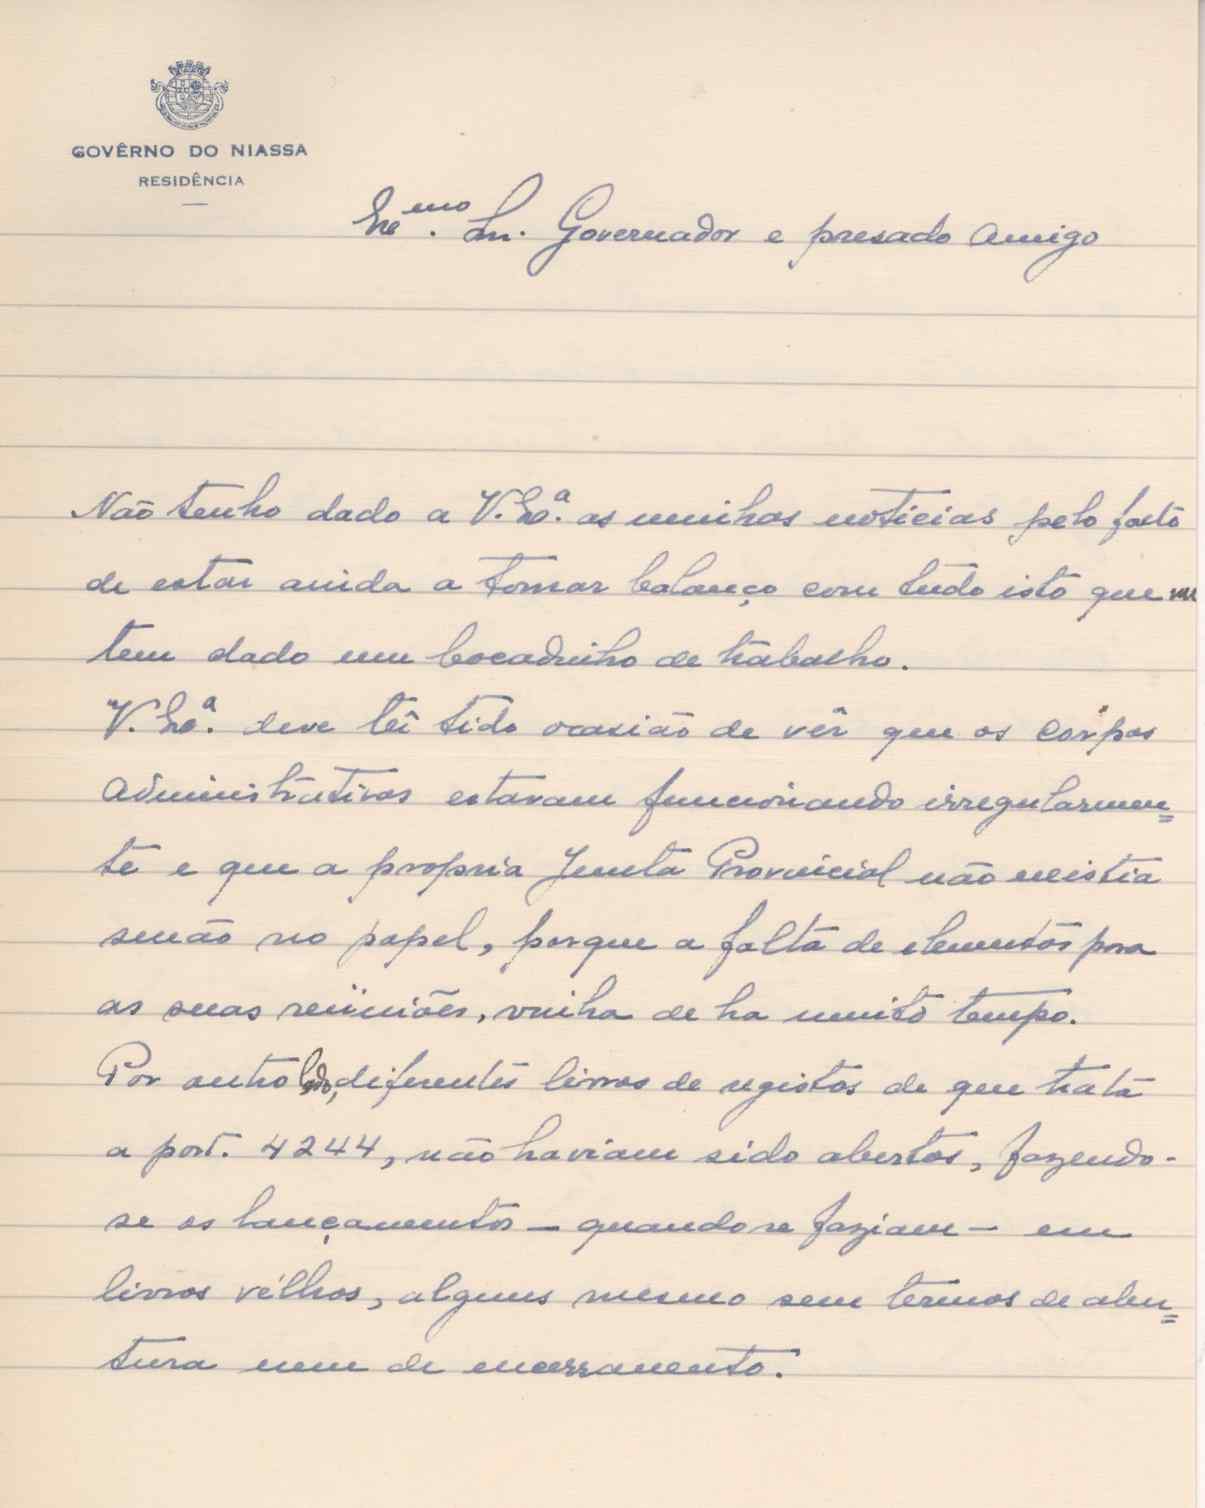 GOVÊRNO DO NIASSA
RESIDÊNCIA
Exᵐᵒ. Sn. Governador e presado amigo
Não tenho dado a V. Exª. as minhas noticias pelo facto
de estar ainda a tomar balanço com tudo isto que me
tem dado um bocadinho de trabalho.
V. Exª. deve têr tido ocasião de vêr que os corpos
administrativos estavam funcionando irregularmen=
te e que a propria Junta Provincial não existia
senão no papel, porque a falta de elementos para
as suas reüniões, vinha de ha muito tempo.
Por outro lado, diferentes livros de registos de que trata
a port. 4244, não haviam sido abertos, fazendo-
se os lançamentos — quando se faziam — em
livros vélhos, alguns mesmo sem termos de aber=
tura nem de encerramento.